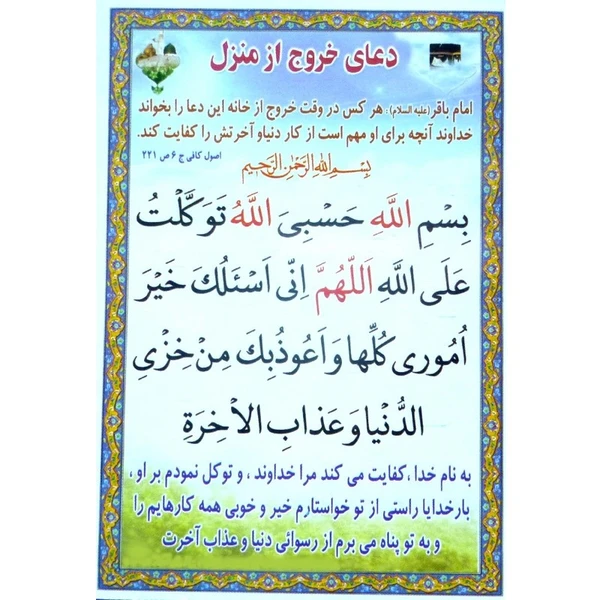 دعای خروج از منزل
امام باقر (علیه السلام) : هر کس در وقت خروج از خانه این دعا را بخواند
خداوند آنچه برای او مهم است از کار دنیا و آخرتش را کفایت کند.
اصول کافی ج ۶ ص ۲۲۱
بِسْمِ اللهِ الرَّحْمٰنِ الرَّحِيمِ
بِسْمِ اللَّهِ حَسْبِیَ اللَّهُ تَوَکَّلْتُ
عَلَی اللَّهِ اَللّٰهُمَّ اِنّی اَسْئَلُكَ خَیْرَ
اُمُوری کُلِّها وَ اَعُوذُبِكَ مِنْ خِزْیِ
الدُّنْیا وَ عَذابِ الْاٰخِرَةِ
به نام خدا ،کفایت می کند مرا خداوند ، و توکل نمودم بر او ،
بارخدایا راستی از تو خواستارم خیر و خوبی همه کارهایم را
و به تو پناه می برم از رسوائی دنیا و عذاب آخرت